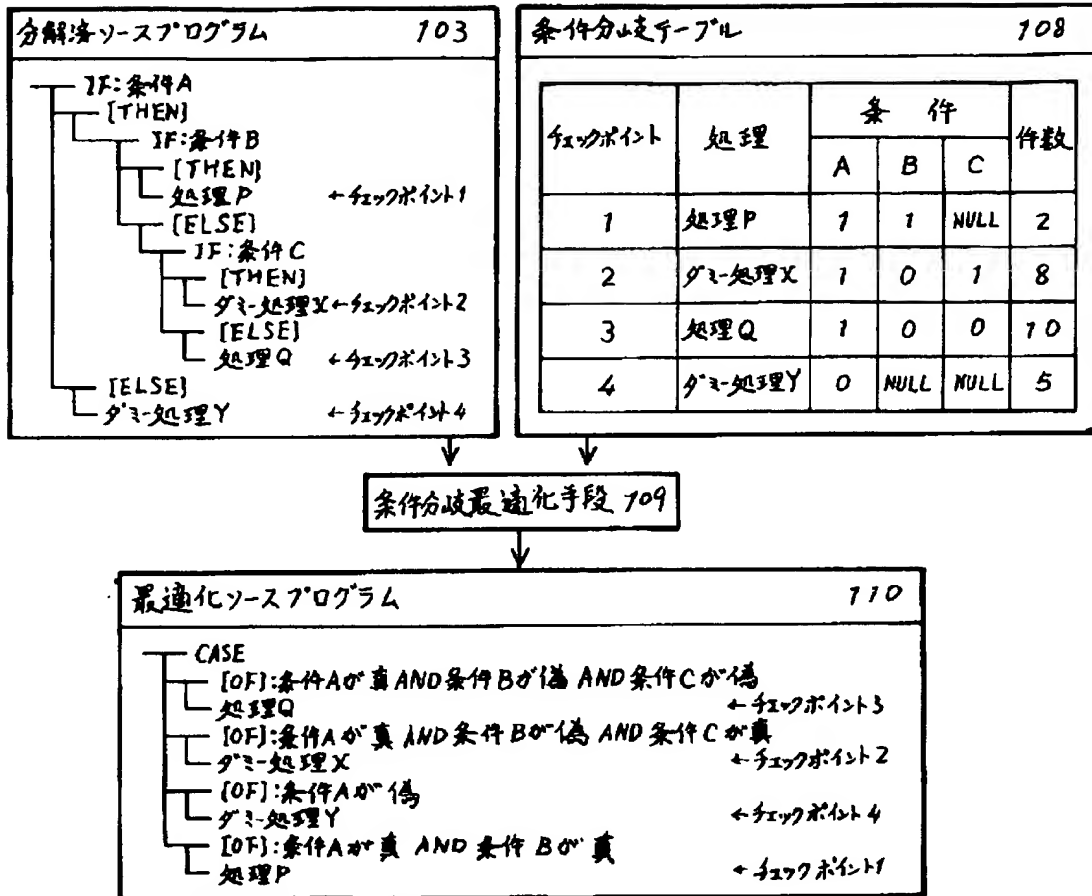 分解済ソースプログラム 103
IF:条件A
[THEN]
IF:条件B
[THEN]
処理P ←チェックポイント1
[ELSE]
IF:条件C
[THEN]
ダミー処理X←チェックポイント2
[ELSE]
処理Q ←チェックポイント3
[ELSE]
ダミー処理Y ←チェックポイント4
条件分岐テーブル 108
チェックポイント 処理 条件 件数
A B C
1 処理P 1 1 NULL 2
2 ダミー処理X 1 0 1 8
3 処理Q 1 0 0 10
4 ダミー処理Y 0 NULL NULL 5
条件分岐最適化手段 109
最適化ソースプログラム 110
CASE
[OF]:条件Aが真 AND 条件Bが偽 AND 条件Cが偽
処理Q ←チェックポイント3
[OF]:条件Aが真 AND 条件Bが偽 AND 条件Cが真
ダミー処理X ←チェックポイント2
[OF]:条件Aが偽
ダミー処理Y ←チェックポイント4
[OF]:条件Aが真 AND 条件Bが真
処理P ←チェックポイント1